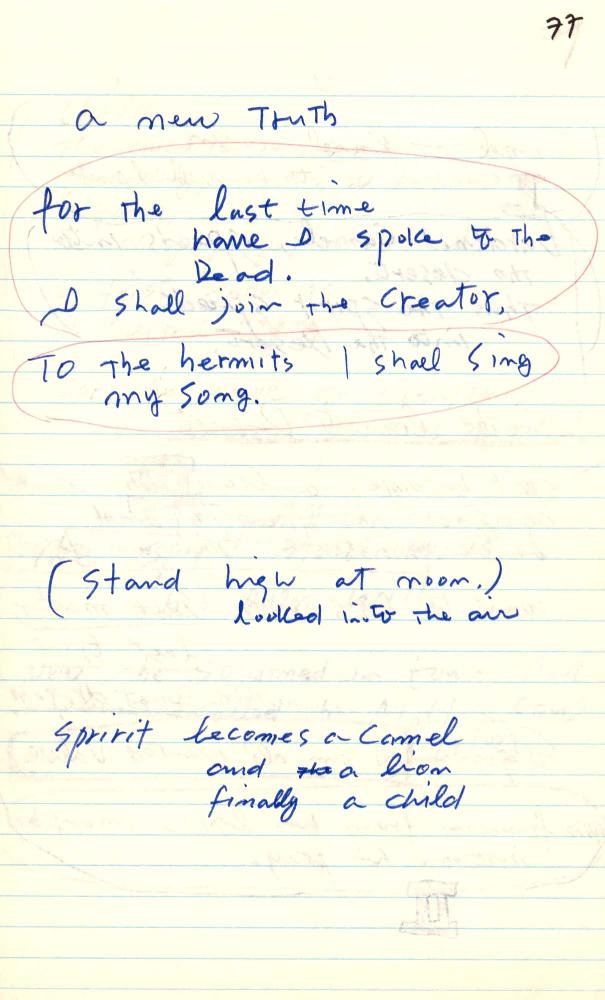 77
a new Truth
for the last time
have I spoke to the
Dead.
I shall join the Creator,
To the hermits I shall sing
my song.
(Stand high at noon.)
looked into the air
Spririt becomes a Camel
and a lion
finally a child